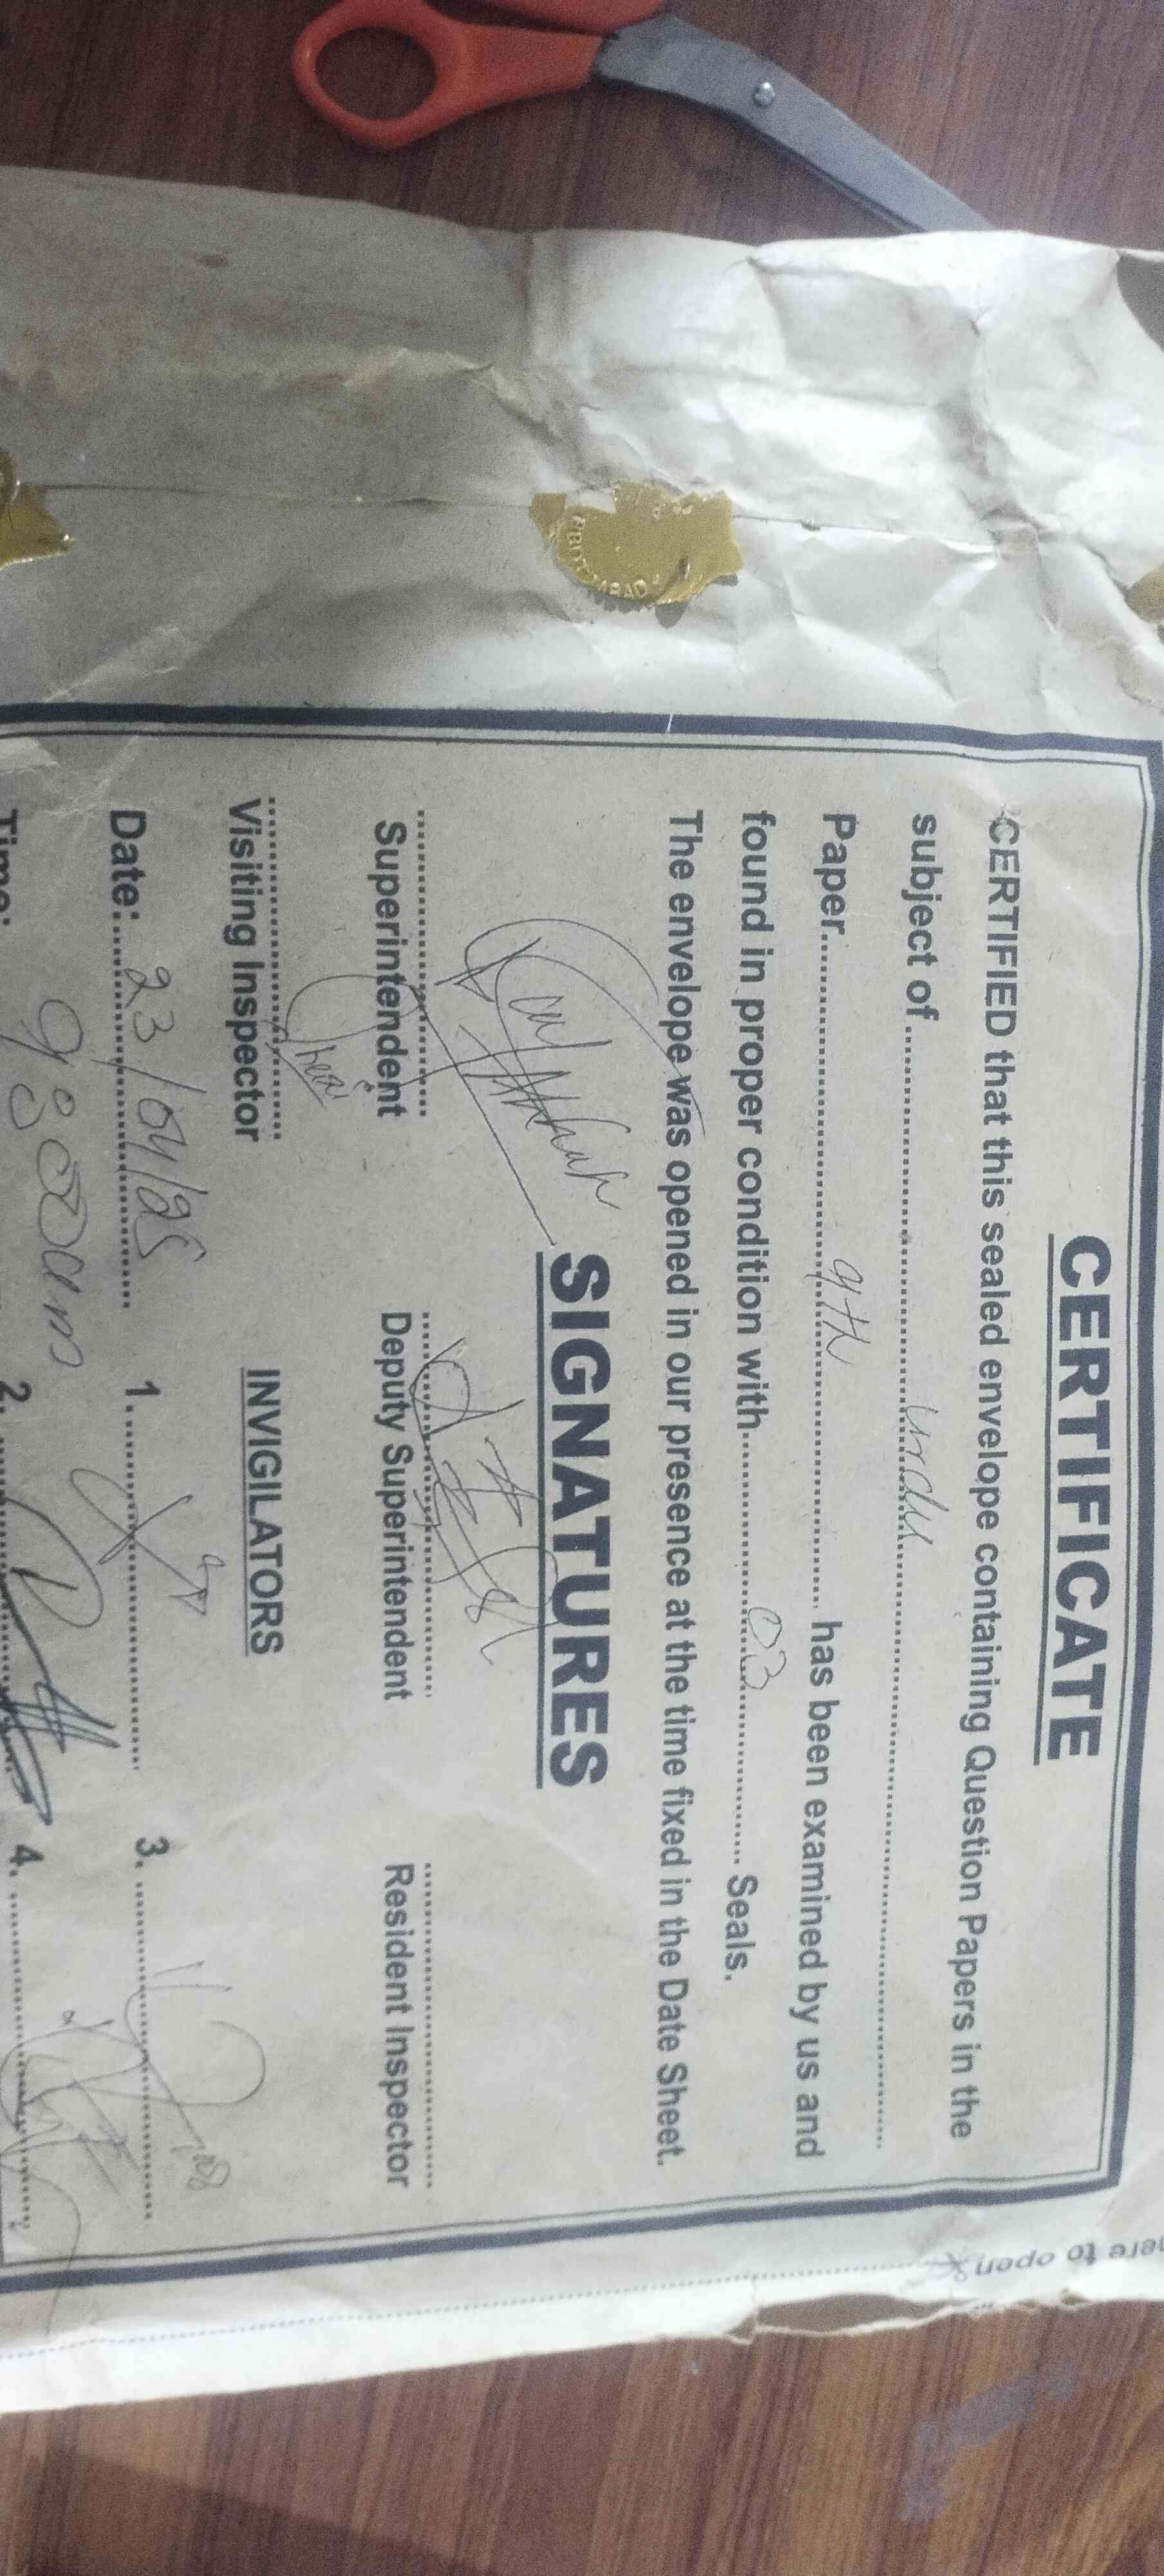 CERTIFICATE
CERTIFIED that this sealed envelope containing Question Papers in the
subject of ........ urdu ........
Paper........ 9th ........ has been examined by us and
found in proper condition with........ 03 ........ Seals.
The envelope was opened in our presence at the time fixed in the Date Sheet.
SIGNATURES
Superintendent
Deputy Superintendent
Resident Inspector
Visiting Inspector
INVIGILATORS
Date:........ 23/04/25
1. ........
3. ........
Time: 9:00am
2. ........
4. ........
here to open